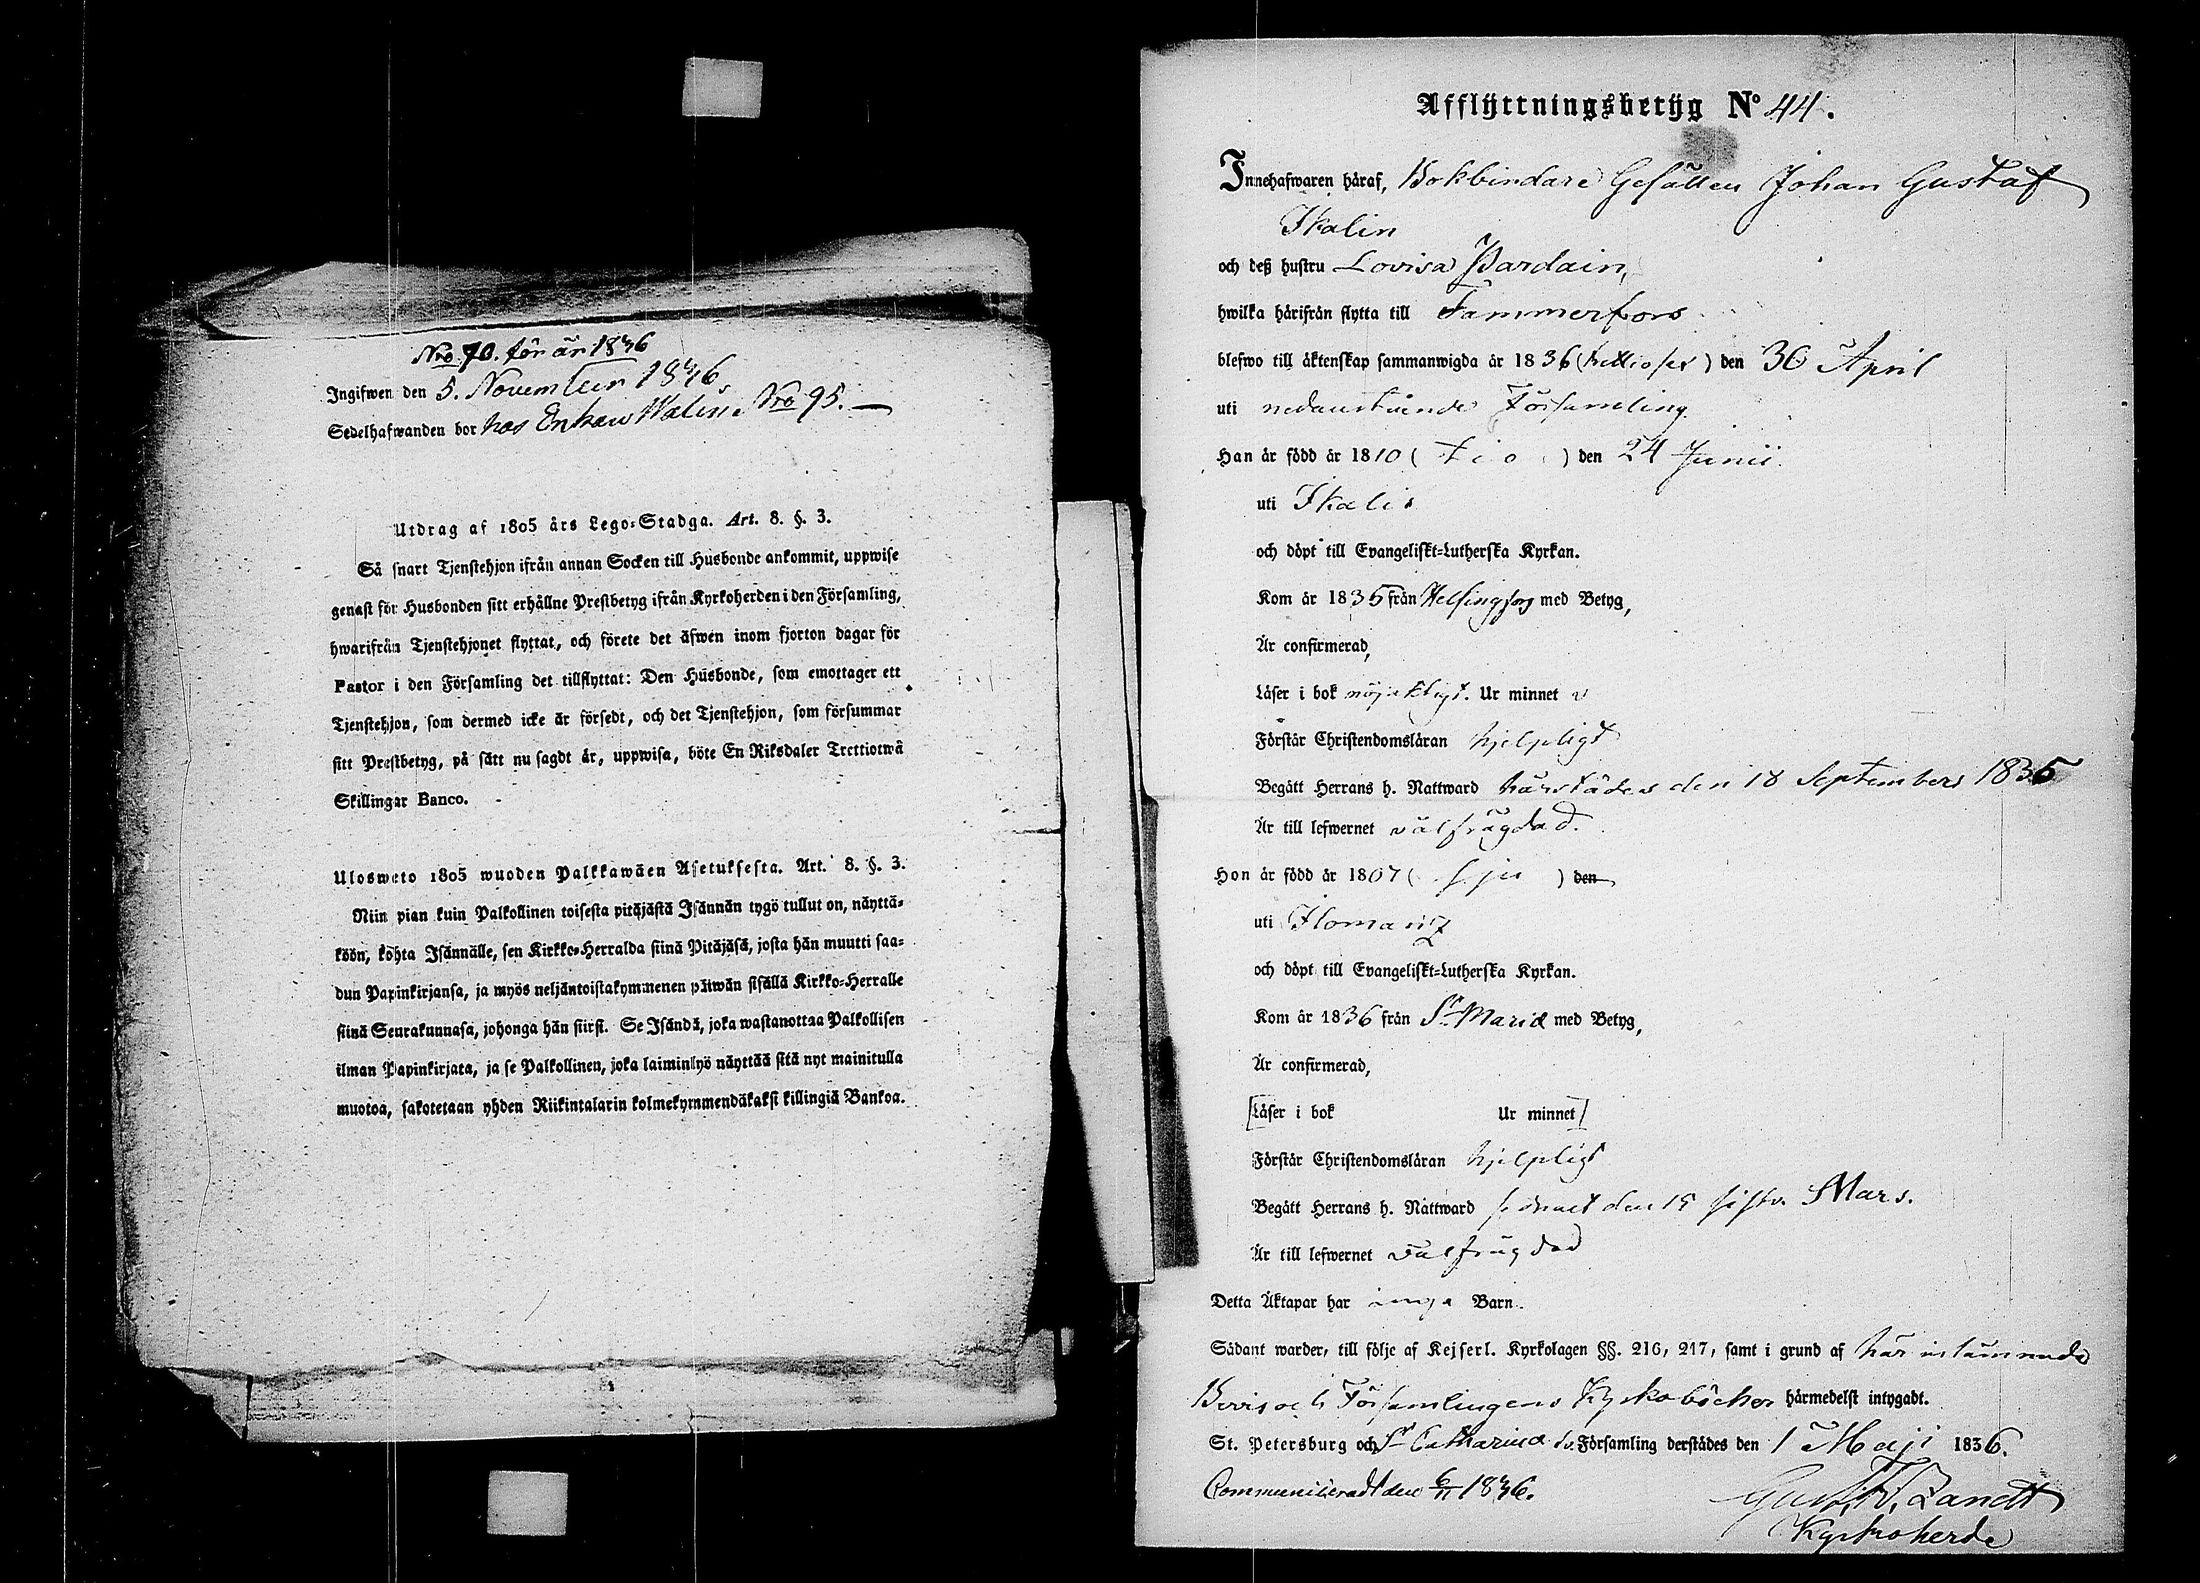 Nro 70. för år 1836
Ingifwen den 5. November 1836.
Sedelhafwanden bor hos Enkan Walin. Nro 95. —
Utdrag af 1805 års Lego-Stadga. Art. 8. §. 3.
Så snart Tjenstehjon ifrån annan Socken till Husbonde ankommit, uppwise
genast för Husbonden sitt erhållne Prestbetyg ifrån Kyrkoherden i den Församling,
hwarifrån Tjenstehjonet flyttat, och förete det äfwen inom fjorton dagar för
Pastor i den Församling det tillflyttat: Den Husbonde, som emottager ett
Tjenstehjon, som dermed icke är försedt, och det Tjenstehjon, som försummar
sitt Prestbetyg, på sätt nu sagdt är, uppwisa, böte En Riksdaler Trettiotwå
Skillingar Banco.
Ulosweto 1805 wuoden Palkkawäen Asetuksesta. Art. 8. §. 3.
Niin pian kuin Palkollinen toisesta pitäjästä Isännän tygö tullut on, näyttä-
köön, kohta Isännälle, sen Kirkko-Herralda siinä Pitäjäsä, josta hän muutti saa-
dun Papinkirjansa, ja myös neljäntoistakymmenen päiwän sisällä Kirkko-Herralle
siinä Seurakunnasa, johonga hän siirsi. Se Isändä, joka wastanottaa Palkollisen
ilman Papinkirjata, ja se Palkollinen, joka laiminlyö näyttää sitä nyt mainitulla
muotoa, sakotetaan yhden Riikintalarin kolmekymmendäkaksi killingiä Bankoa.
Afflyttningsbetyg No 44.
Innehafwaren häraf, Bokbindare Gesällen Johan Gustaf
Ikalin
och deß hustru Lovisa Pardain,
hwilka härifrån flytta till Tammerfors
blefwo till äktenskap sammanwigda år 1836 (trettiosex) den 30 April
uti nedanstående Församling.
Han är född år 1810 (tio) den 24 Junii.
uti Ikalis
och döpt till Evangeliskt-Lutherska Kyrkan.
Kom år 1835 från Helsingfors med Betyg,
Är confirmerad,
Läser i bok nöjaktigt. Ur minnet
Förstår Christendomsläran hjelpligt
Begått Herrans h. Nattward härstädes den 18 September 1835
Är till lefwernet välfrägdad.
Hon är född år 1807 (sju) den
uti Ilomantz
och döpt till Evangeliskt-Lutherska Kyrkan.
Kom år 1836 från St Mariæ med Betyg,
Är confirmerad,
[Läser i bok Ur minnet]
Förstår Christendomsläran hjelpligt
Begått Herrans h. Nattward den 15 Mars.
Är till lefwernet välfrägdad
Detta Äktapar har inga Barn.
Sådant warder, till följe af Kejserl. Kyrkolagen §§. 216, 217, samt i grund af här inlämnade
Bevis och Församlingens Kyrkoböcker härmedelst intygadt.
St. Petersburg och St Catharinæ Sv. Församling derstädes den 1 Maji 1836.
Communiceradt den 6/11 1836.
Gust. F. Zandt
Kyrkoherde